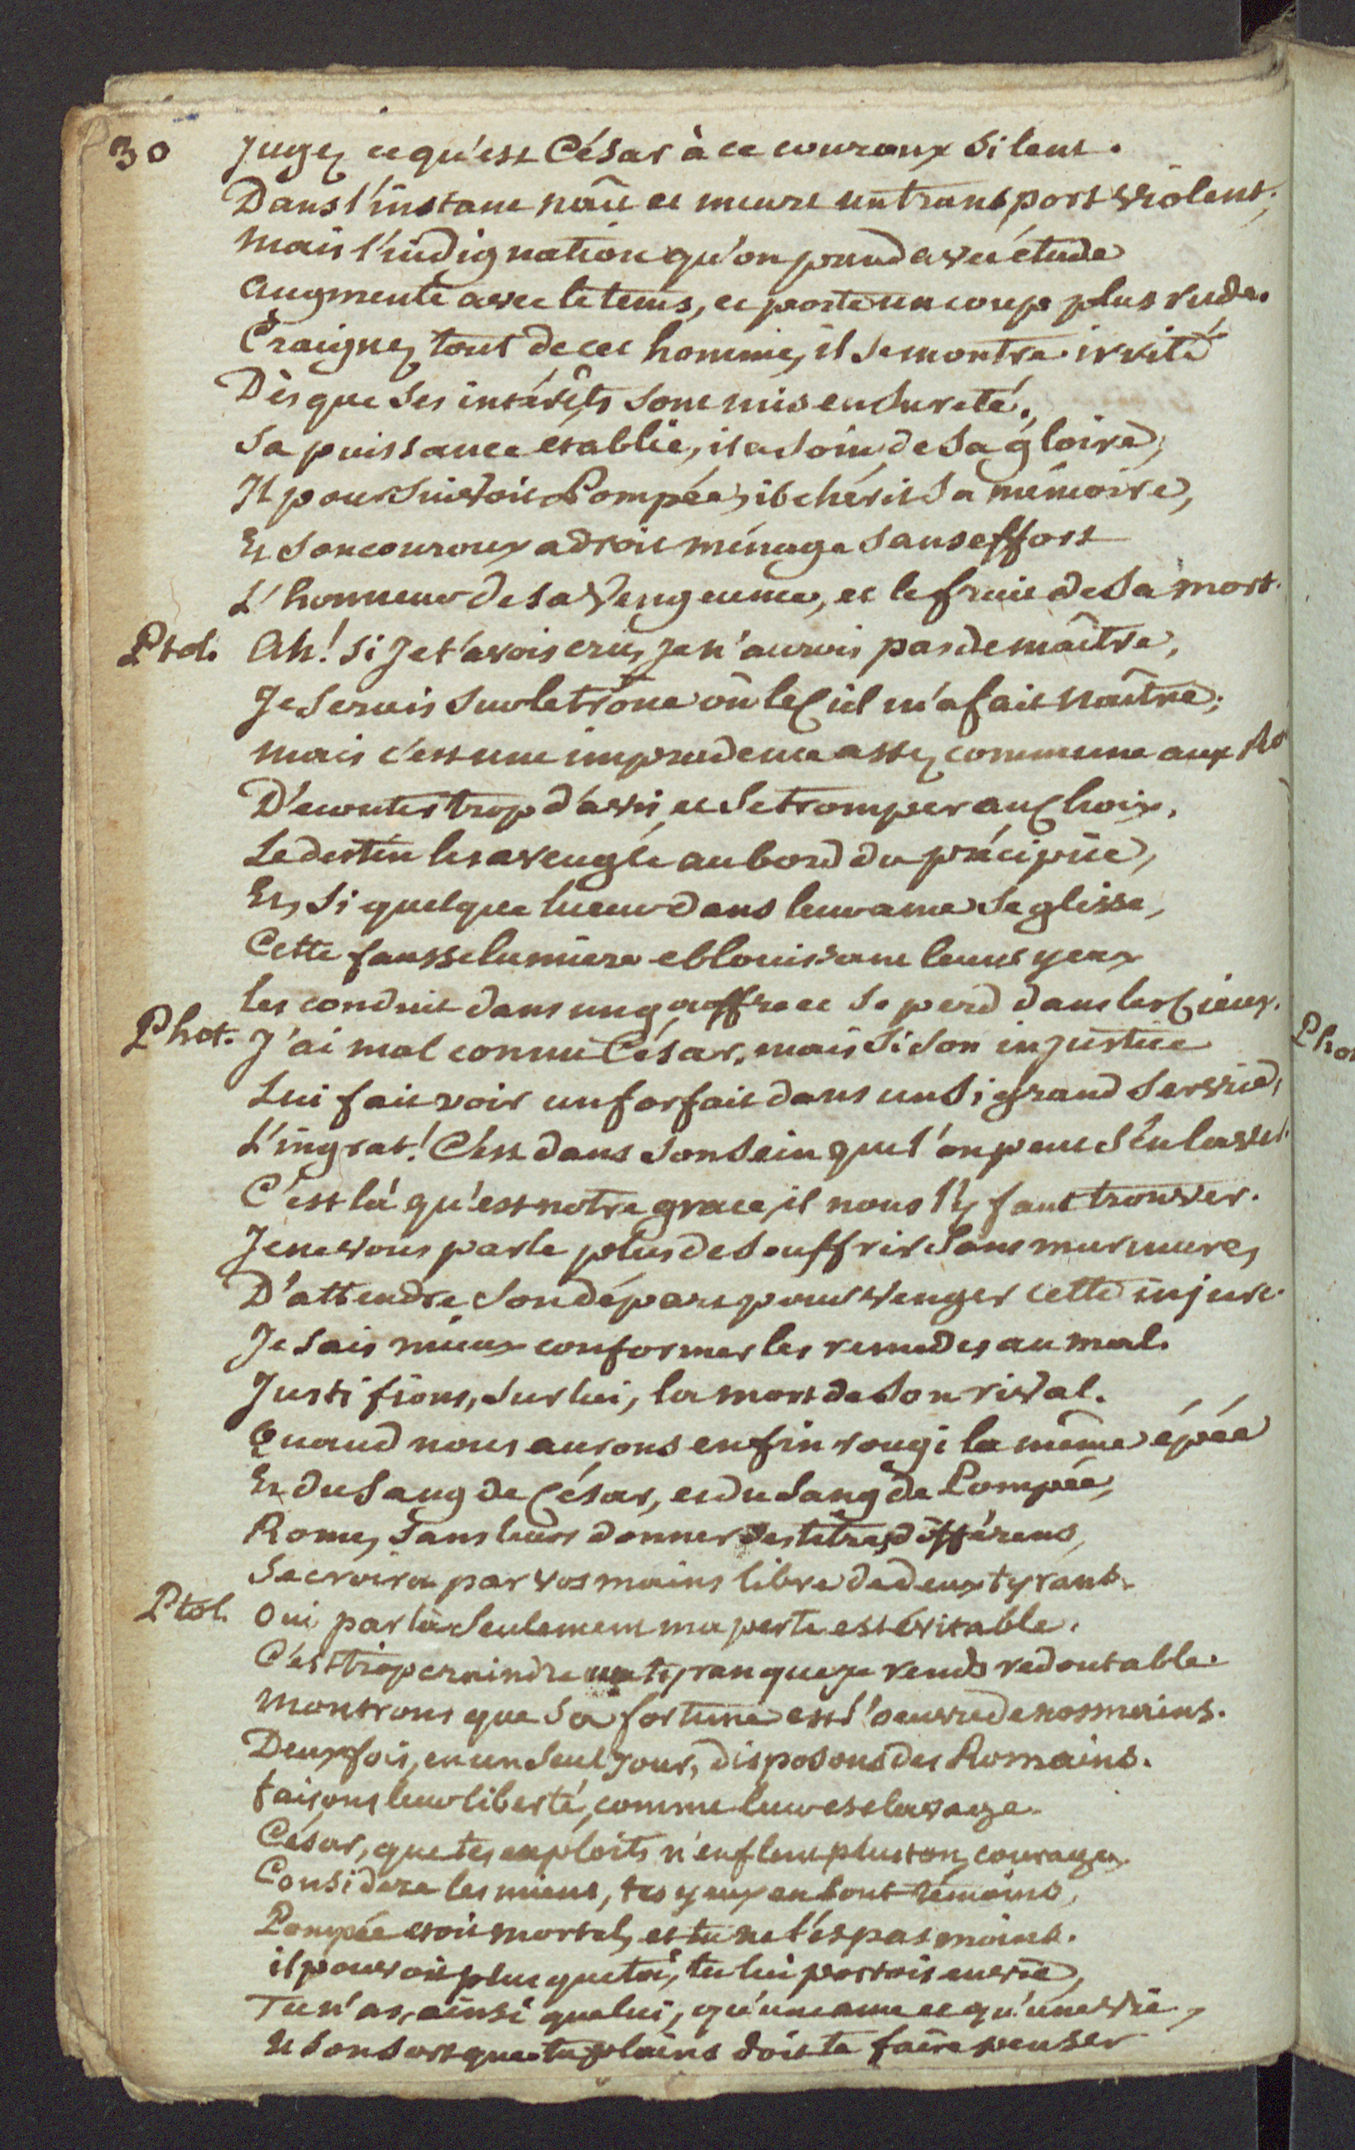 30 Jugez ce qu'est César à ce couroux si lent.
Dans l'instant naît et meurt un transport violent;
Mais l'indignation qu'on prend avec étude
Augmente avec le tems, et porte un coup plus rude.
Craignez tout de cet homme, il se montre irrité
Dès que ses intérêts sont mis en sureté.
Sa puissance etablie, il a soin de sa gloire;
Il poursuivoit Pompée, il chérit sa mémoire,
Et son couroux adroit ménage sans effort
L'honneur de sa vengeance, et le fruit de sa mort.
Ptol. Ah! si je t'avois cru, je n'aurois pas de maître,
Je serois sur le trône où le Ciel m'a fait naître;
Mais c'est une imprudence assez commune aux Ro
D'ecouter trop d'avis, et se tromper au Choix,
Le destin les aveugle au bord du précipice,
Et, si quelque lueur dans leur ame se glisse,
Cette fausse lumiere eblouissant leurs yeux
Les conduit dans un gouffre et se perd dans les Cieux.
Phot. J'ai mal connu César, mais si son injustice
Lui fait voir un forfait dans un si grand service,
L'ingrat! C'est dans son sein que l'on peut s'en laver.
C'est là qu'est notre grace, il nous l'y faut trouver.
Je ne vous parle plus de souffrir sans murmure,
D'attendre son départ pour venger cette injure.
Je sais mieux conformer les remedes au mal.
Justifions, sur lui, la mort de son rival.
Quand nous aurons enfin rougi la même épée
Et du sang de César, et du sang de Pompée,
Rome, sans leurs donner des titres différens,
Se croira par vos mains libre de deux tyrans.
Ptol. Oui, par là seulement ma perte est évitable.
C'est trop craindre un tyran que je rends redoutable.
Montrons que sa fortune est l'oeuvre de nos mains.
Deux fois, en un seul jour, disposons des Romains.
Faisons leur liberté, comme leur esclavage.
César, que tes exploits n'enflent plus ton courage,
Considere les miens, tes yeux en sont témoins,
Pompée etoit mortel, et tu ne l'es pas moins.
il pouvoit plus que toi, tu lui portois envie,
Tu n'as, ainsi que lui, qu'une ame et qu'une vie,
Et son sort que tu plains doit te faire penser
Phot